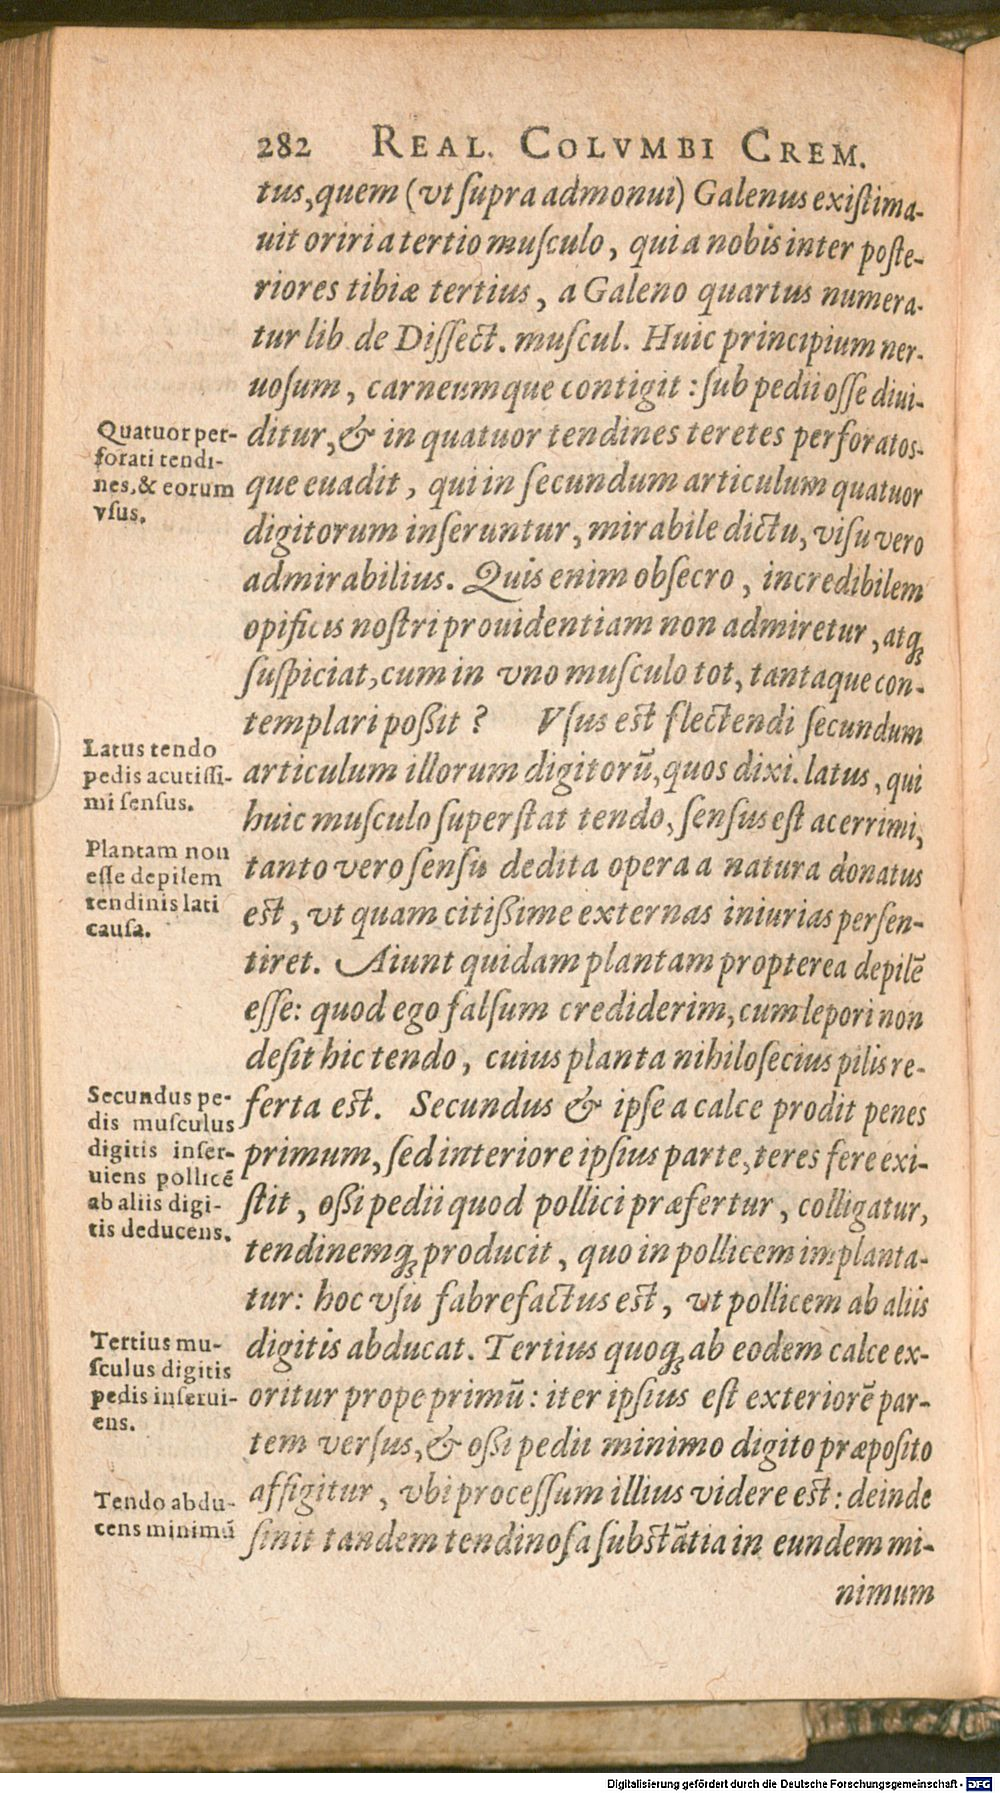 282 REAL. COLVMBI CREM.
tus, quem (vt supra admonui) Galenus existima-
uit oriri a tertio musculo, qui a nobis inter poste-
riores tibiæ tertius, a Galeno quartus numera-
tur lib de Dissect. muscul. Huic principium ner-
uosum, carneumque contigit: sub pedii osse diui-
ditur, & in quatuor tendines teretes perforatos-
que euadit, qui in secundum articulum quatuor
digitorum inseruntur, mirabile dictu, visu vero
admirabilius. Quis enim obsecro, incredibilem
opificis nostri prouidentiam non admiretur, atq;
suspiciat, cum in vno musculo tot, tantaque con-
templari poßit? Vsus est flectendi secundum
articulum illorum digitorū, quos dixi. latus, qui
huic musculo superstat tendo, sensus est acerrimi,
tanto vero sensu dedita opera a natura donatus
est, vt quam citißime externas iniurias persen-
tiret. Aiunt quidam plantam propterea depilē
esse: quod ego falsum crediderim, cum lepori non
desit hic tendo, cuius planta nihilosecius pilis re-
ferta est. Secundus & ipse a calce prodit penes
primum, sed interiore ipsius parte, teres fere exi-
stit, oßi pedii quod pollici præfertur, colligatur,
tendinemq; producit, quo in pollicem implanta-
tur: hoc vsu fabrefactus est, vt pollicem ab aliis
digitis abducat. Tertius quoq; ab eodem calce ex-
oritur prope primū: iter ipsius est exteriorē par-
tem versus, & oßi pedii minimo digito præposito
affigitur, vbi processum illius videre est: deinde
sinit tandem tendinosa substātia in eundem mi-
nimum
Quatuor per-
forati tendi-
nes, & eorum
vsus.
Latus tendo
pedis acutissi-
mi sensus.
Plantam non
esse depilem
tendinis lati
causa.
Secundus pe-
dis musculus
digitis inser-
uiens pollicē
ab aliis digi-
tis deducens.
Tertius mu-
sculus digitis
pedis inserui-
ens.
Tendo abdu-
cens minimū
Digitalisierung gefördert durch die Deutsche Forschungsgemeinschaft - DFG